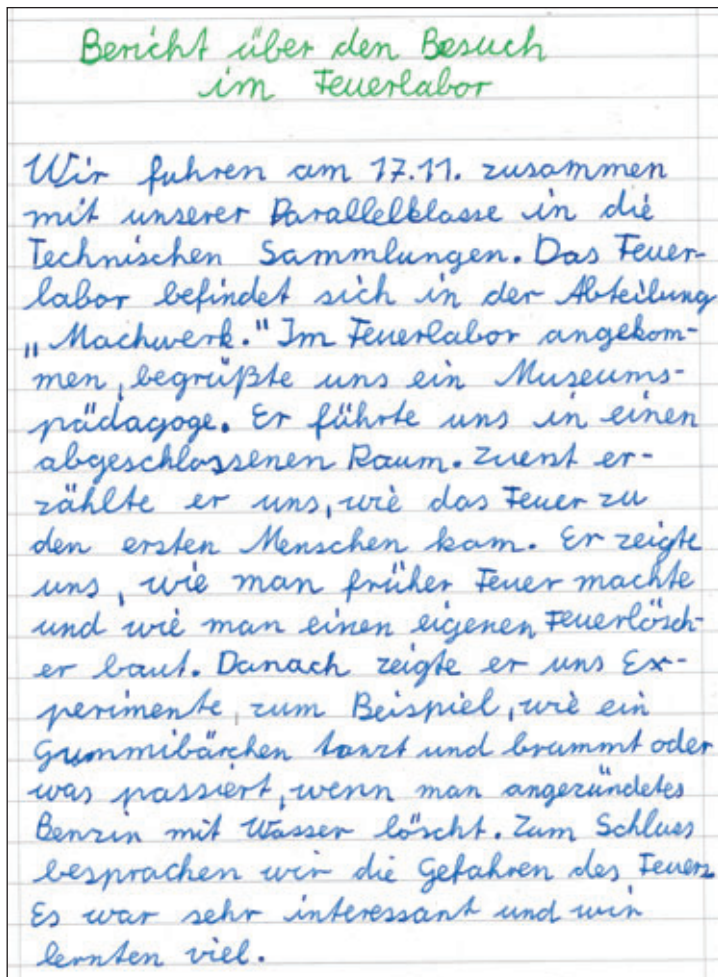 Bericht über den Besuch
im Feuerlabor
Wir fuhren am 17.11. zusammen
mit unserer Parallelklasse in die
Technischen Sammlungen. Das Feuer-
labor befindet sich in der Abteilung
„Machwerk." Im Feuerlabor angekom-
men, begrüßte uns ein Museums-
pädagoge. Er führte uns in einen
abgeschlossenen Raum. Zuerst er-
zählte er uns, wie das Feuer zu
den ersten Menschen kam. Er zeigte
uns, wie man früher Feuer machte
und wie man einen eigenen Feuerlösch-
er baut. Danach zeigte er uns Ex-
perimente, zum Beispiel, wie ein
Gummibärchen tanzt und brummt oder
was passiert, wenn man angezündetes
Benzin mit Wasser löscht. Zum Schluss
besprachen wir die Gefahren des Feuers
Es war sehr interessant und wir
lernten viel.